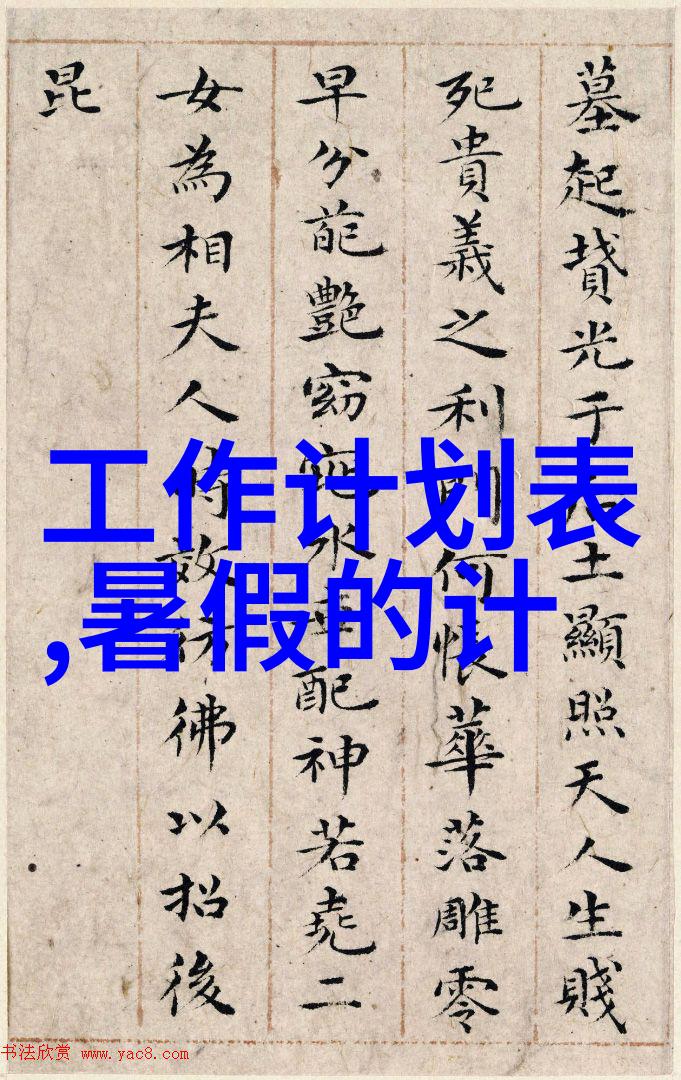 墓起墳光于土顯照天人生賤
死貴義之利門何悵華落雕零
早分葩艷窈窕永世配神若堯二
女為相夫人時效彷彿以招後
昆
工作计划表
,暑假的计
书法欣赏 www.yac8.com